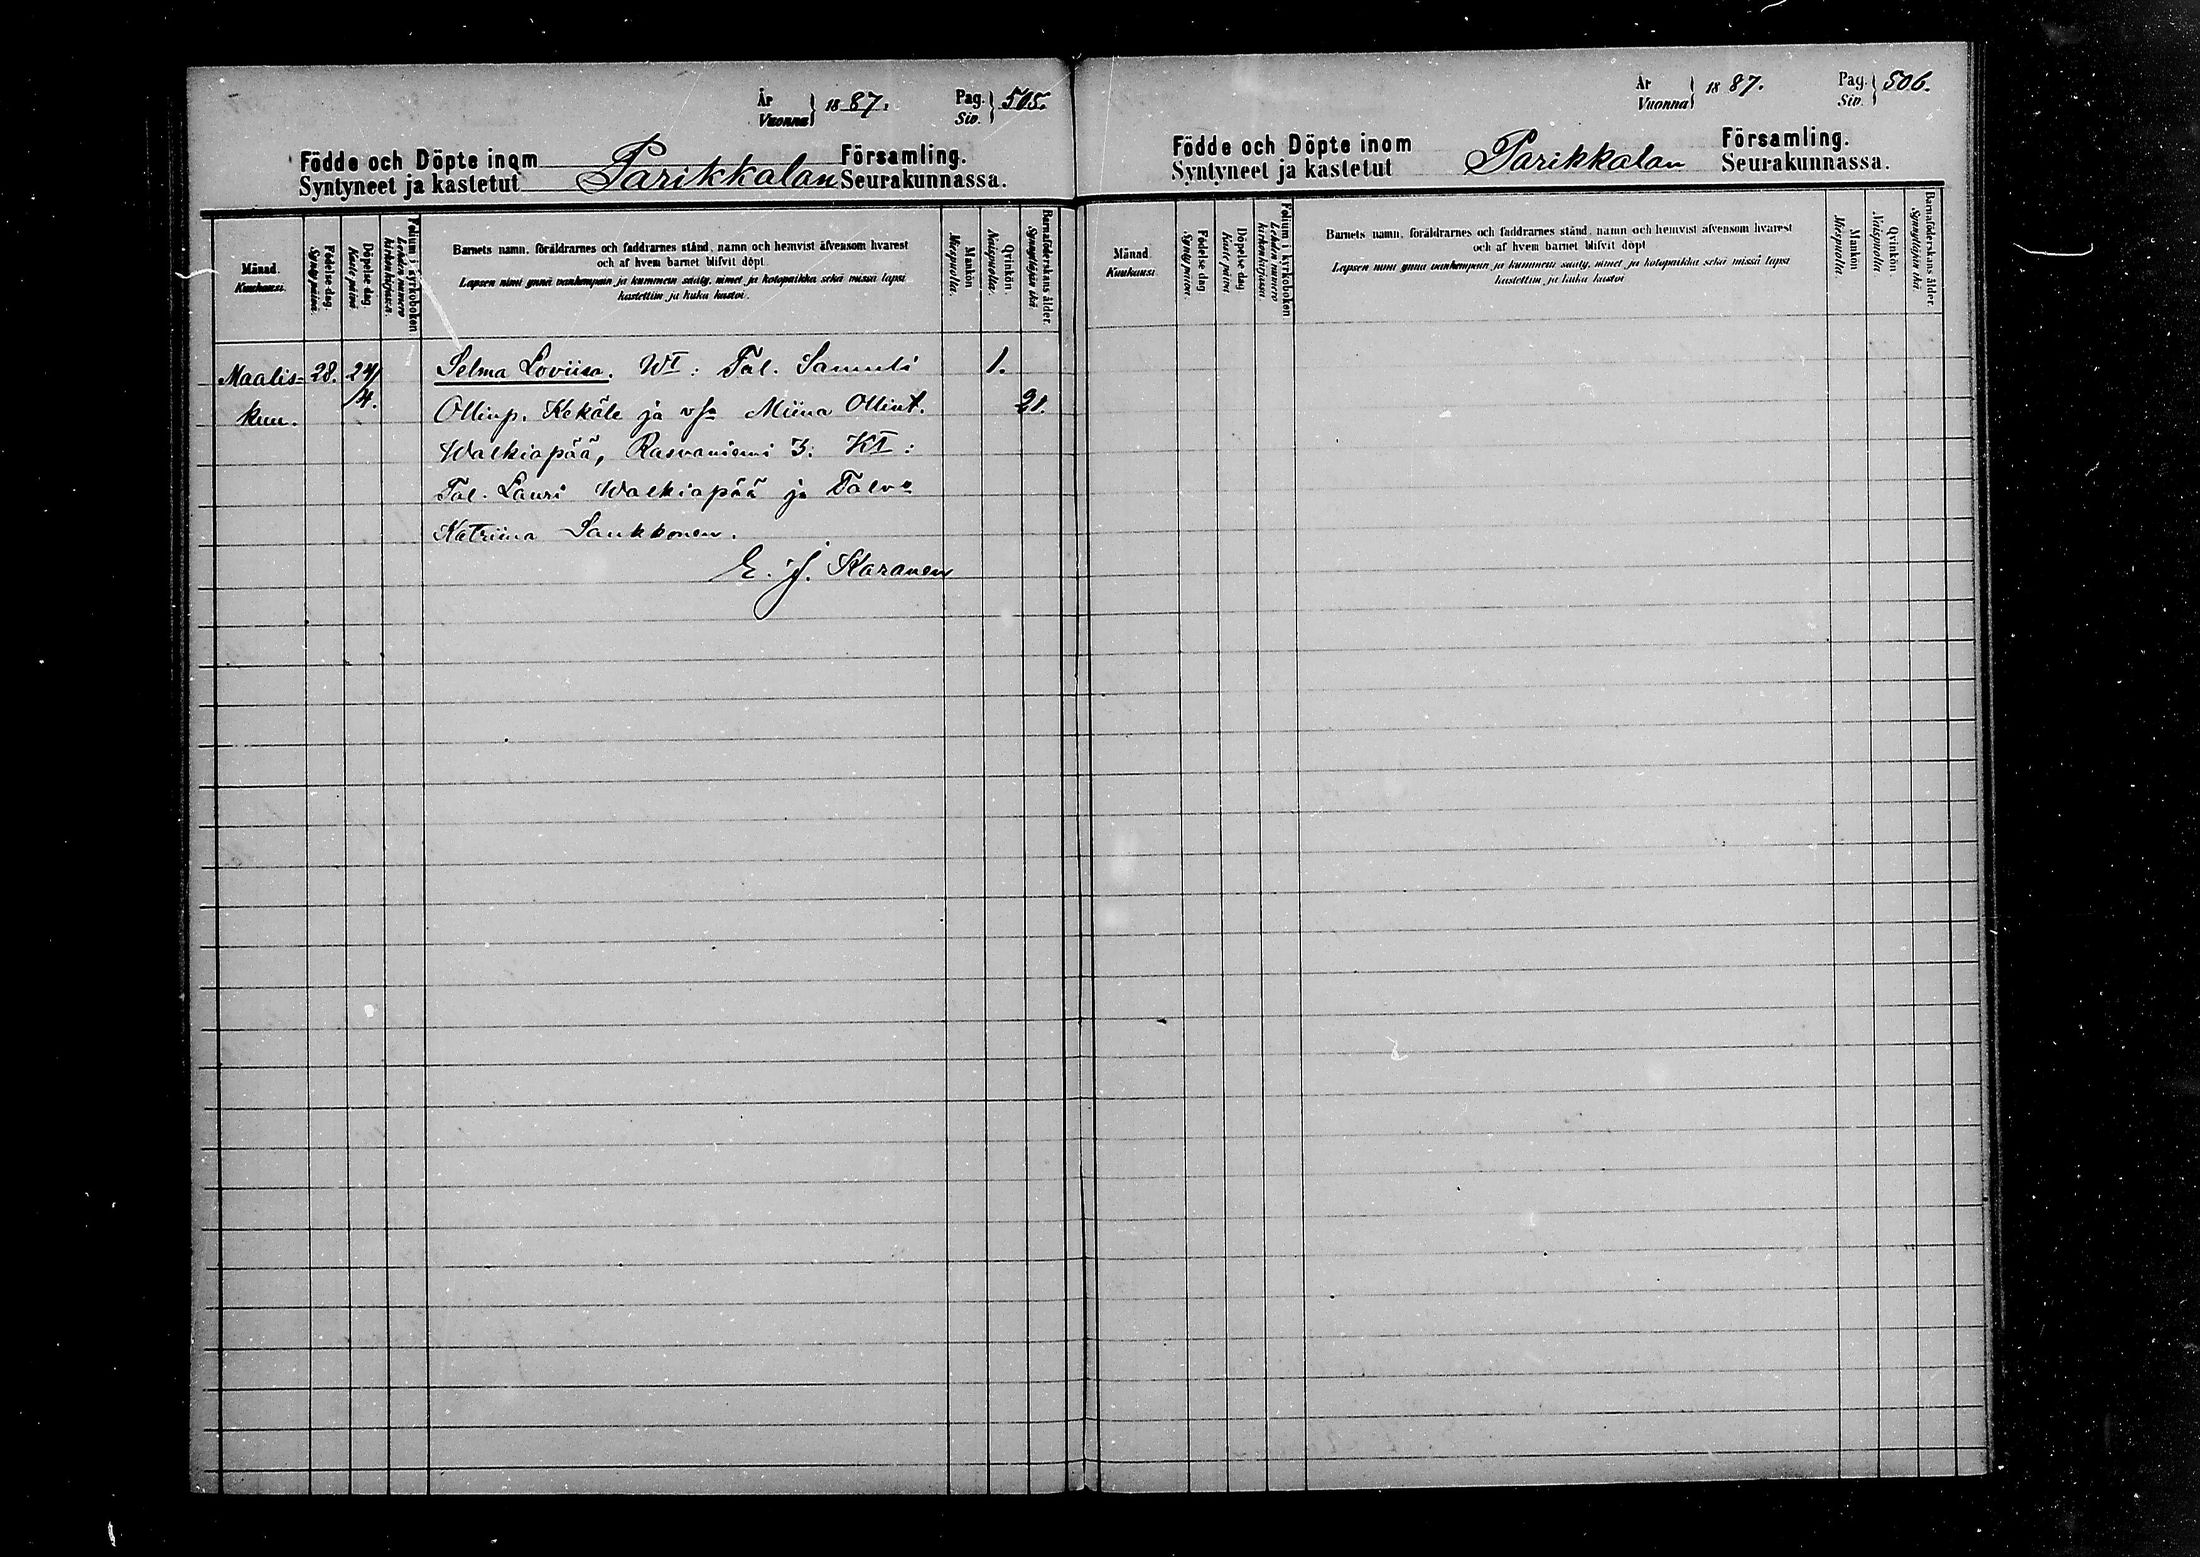 År
Vuonna } 1887.
Pag.
Siv. } 505.
Födde och Döpte inom
Syntyneet ja kastetut
Parikkalan
Församling.
Seurakunnassa.
Månad.
Kuukausi.
Födelse dag.
Synty päivä.
Döpelse dag.
Kaste päivä
Folium i kyrkoboken
Lehden numero
kirkonkirjassa.
Barnets namn, föräldrarnes och faddrarnes stånd, namn och hemvist äfvensom hvarest
och af hvem barnet blifvit döpt.
Lapsen nimi ynnä vanhempain ja kummein sääty, nimet ja kotopaikka sekä missä lapsi
kastettiin ja kuka kastoi.
Mankön
Miespuolia.
Qvinkön.
Naispuolia.
Barnaföderskans ålder.
Synnyttäjän ikä
Maalis-
kuu.
28.
24/
/4.
Selma Loviisa. WI: Tal. Samuli
Ollinp. Kekäle ja vso Miina Ollint.
Walkiapää, Rasvaniemi 3. KI:
Tal. Lauri Walkiapää ja Talvo
Katriina Saukkonen.
E. J. Karanen
1.
21.
År
Vuonna } 1887.
Pag.
Siv. } 506.
Födde och Döpte inom
Syntyneet ja kastetut
Parikkalan
Församling.
Seurakunnassa.
Månad
Kuukausi
Födelse dag
Synty päivä.
Döpelse dag
Kaste päivä
Folium i kyrkoboken
Lehden numero
kirkonkirjassa
Barnets namn, föräldrarnes och faddrarnes stånd, namn och hemvist äfvensom hvarest
och af hvem barnet blifvit döpt
Lapsen nimi ynnä vanhempain ja kummein sääty, nimet ja kotopaikka sekä missä lapsi
kastettiin ja kuka kastoi
Mankön
Miespuolia.
Qvinkön.
Naispuolia
Barnaföderskans ålder.
Synnyttäjän ikä